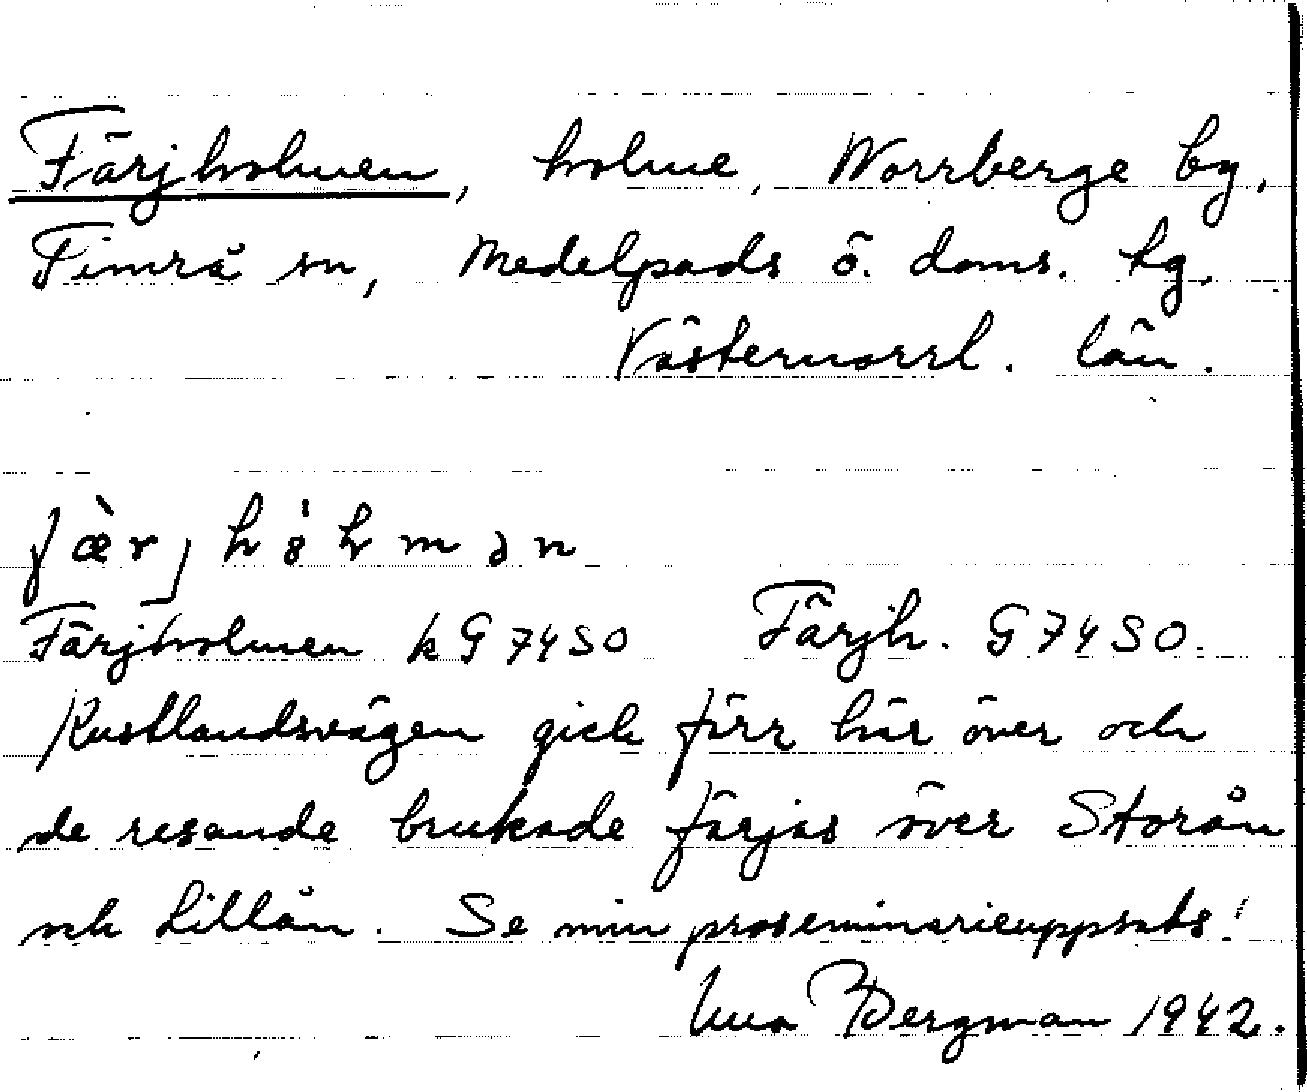 Färjholmen, holme, Norrberge by,
Timrå sn, Medelpads ö. doms. tg,
Västernorrl. län.
fæ̀rjhòhmən
Färjholmen kG 74 SO Färjh. G 74 SO.
Kustlandsvägen gick förr här över och
de resande brukade färjas över Storån
och Lillån. Se min proseminarieuppsats!
Bergman 1942.